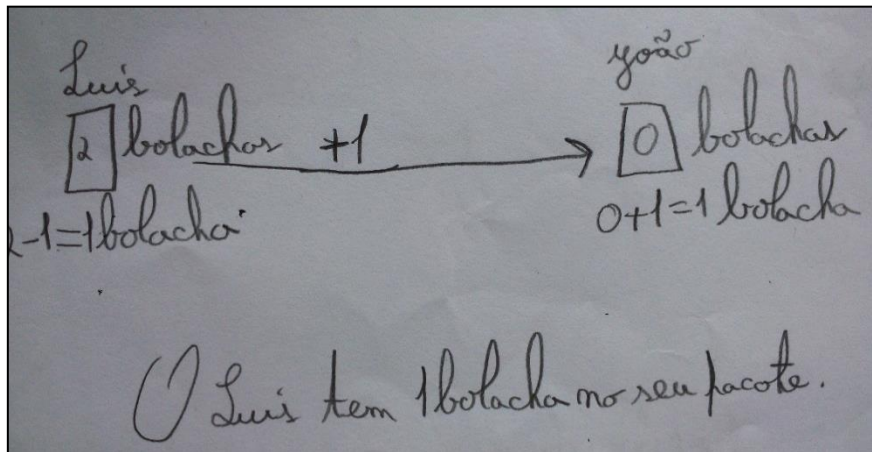 Luis
João
2 bolachas +1 0 bolachas
2-1=1 bolacha
0+1=1 bolacha
O Luis tem 1 bolacha no seu pacote.